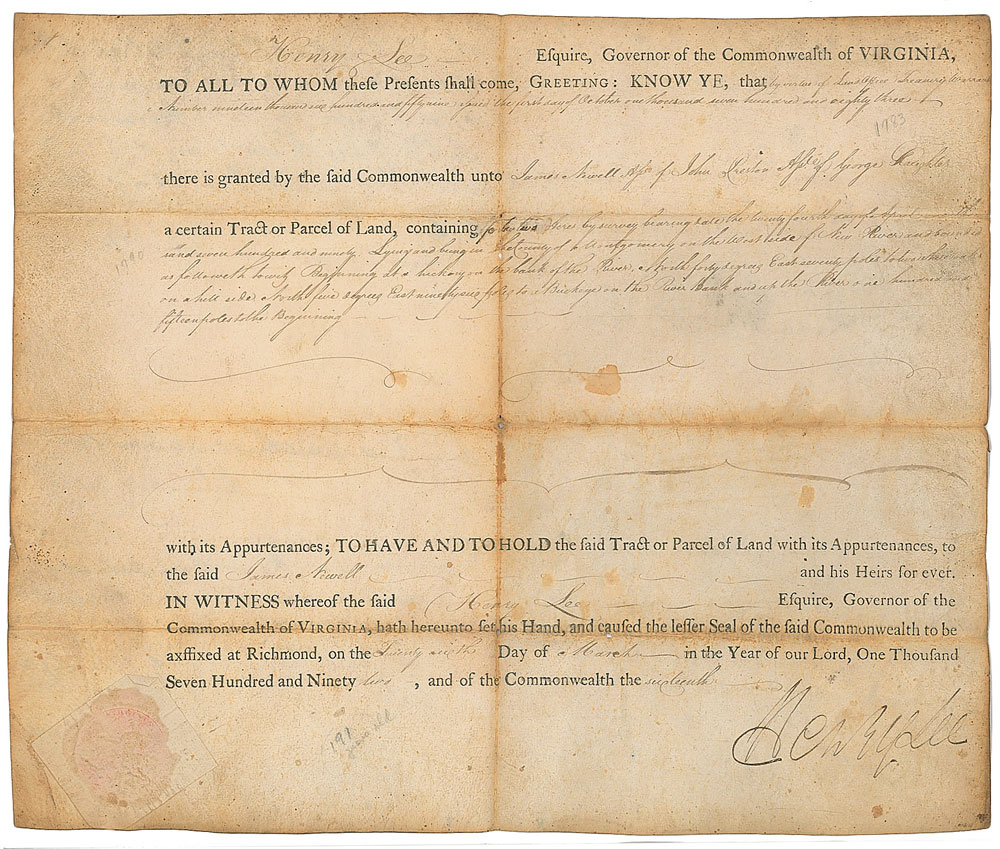 Henry Lee Esquire, Governor of the Commonwealth of VIRGINIA,
TO ALL TO WHOM these Presents shall come, GREETING: KNOW YE, that by virtue of Land Office Treasury Warrant
Number nineteen thousand one hundred and fifty nine issued the first day of October one thousand seven hundred and eighty three
1783
there is granted by the said Commonwealth unto James Newell Assee of John Preston Assee of George
a certain Tract or Parcel of Land, containing forty two Acres by survey bearing date the twenty fourth day of April
sand seven hundred and ninety. Lying and being in the County of Montgomery on the West side of New River and bounded
1790
as followeth towit, Beginning at a hickory on the bank of the River, North forty degrees East seventy poles to
on a hill side North five degrees East ninety six poles to a Buckeye on the River Bank and up the River one hundred and
fifteen poles to the Beginning
with its Appurtenances; TO HAVE AND TO HOLD the said Tract or Parcel of Land with its Appurtenances, to
the said James Newell and his Heirs for ever.
IN WITNESS whereof the said Henry Lee Esquire, Governor of the
Commonwealth of VIRGINIA, hath hereunto set his Hand, and caused the lesser Seal of the said Commonwealth to be
axffixed at Richmond, on the Day of March in the Year of our Lord, One Thousand
Seven Hundred and Ninety two, and of the Commonwealth the sixteenth
191
Henry Lee